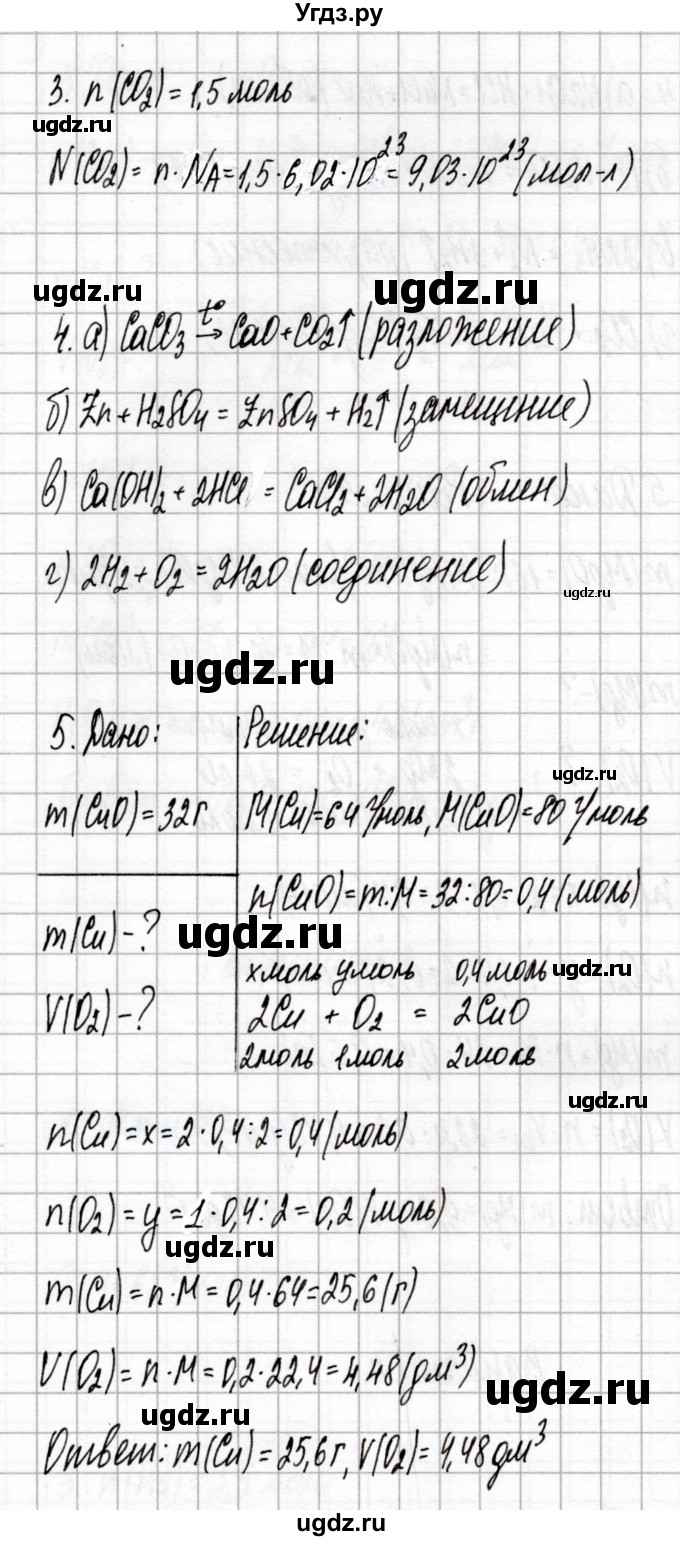 Угдз.ру
3. n(CO2) = 1,5 моль
ugdz.ru
N(CO2) = n·NA = 1,5·6,02·10²³ = 9,03·10²³ (мол-л)
ugdz.ru
ugdz.ru
4. а) CaCO3 →t° CaO + CO2↑ (разложение)
б) Zn + H2SO4 = ZnSO4 + H2↑ (замещение)
в) Ca(OH)2 + 2HCl = CaCl2 + 2H2O (обмен)
г) 2H2 + O2 = 2H2O (соединение)
ugdz.ru
ugdz.ru
5. Дано: Решение:
ugdz.ru
m(CuO) = 32 г M(Cu) = 64 г/моль, M(CuO) = 80 г/моль
n(CuO) = m:M = 32:80 = 0,4 (моль)
m(Cu) - ?
ugdz.ru
x моль y моль 0,4 моль
ugdz.ru
V(O2) - ? 2Cu + O2 = 2CuO
2 моль 1 моль 2 моль
ugdz.ru
n(Cu) = x = 2·0,4:2 = 0,4 (моль)
n(O2) = y = 1·0,4:2 = 0,2 (моль)
ugdz.ru
m(Cu) = n·M = 0,4·64 = 25,6 (г)
V(O2) = n·M = 0,2·22,4 = 4,48 (дм³)
ugdz.ru
ugdz.ru
Ответ: m(Cu) = 25,6 г, V(O2) = 4,48 дм³
ugdz.ru